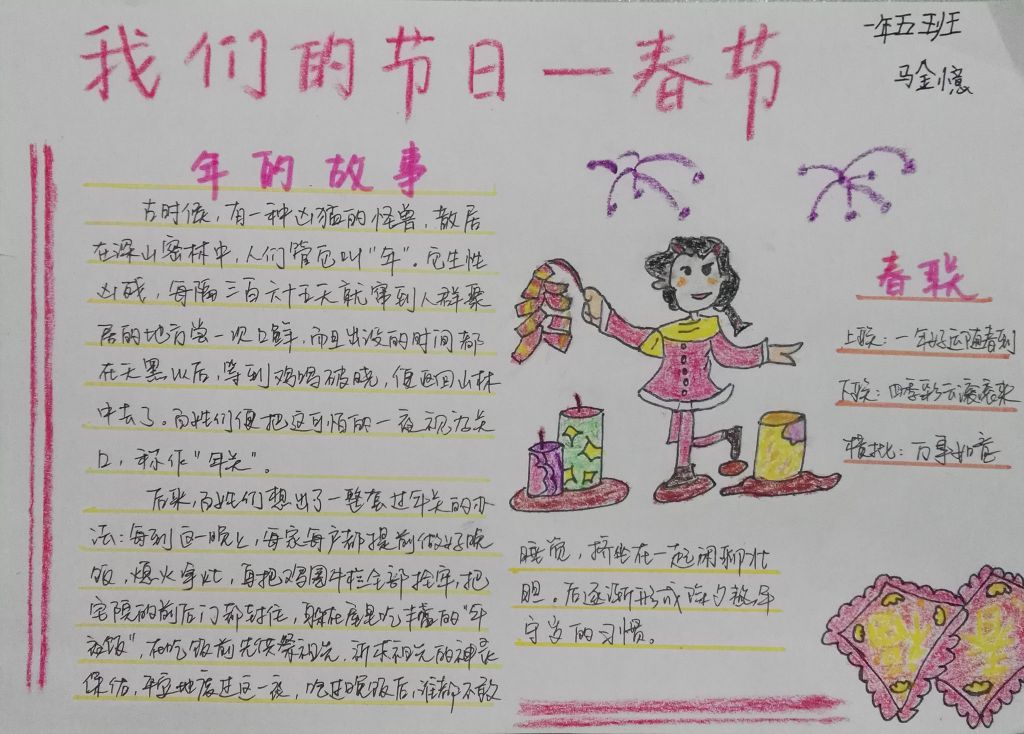 我们的节日一春节
一年五班
马金憶
年的故事
古时候，有一种凶猛的怪兽，散居
在深山密林中，人们管它叫“年”。它生性
凶残，每隔三百六十五天就窜到人群聚
居的地方尝一次口鲜，而且出没的时间都
在天黑以后，等到鸡鸣破晓，便返回山林
中去了。百姓们便把这可怕的一夜视为关
口，称作“年关”。
后来，百姓们想出了一整套过年关的办
法：每到这一晚上，每家每户都提前做好晚
饭，熄火净灶，再把鸡圈牛栏全部拴牢，把
宅院的前后门都封住，躲在屋里吃丰盛的“年
夜饭”，在吃饭前先供祭祖先，祈求祖先的神灵
保佑，平安地度过这一夜，吃过晚饭后，谁都不敢
睡觉，挤坐在一起闲聊壮
胆。后逐渐形成除夕熬年
守岁的习惯。
春联
上联：一年好运随春到
下联：四季彩云滚滚来
横批：万事如意
福
星